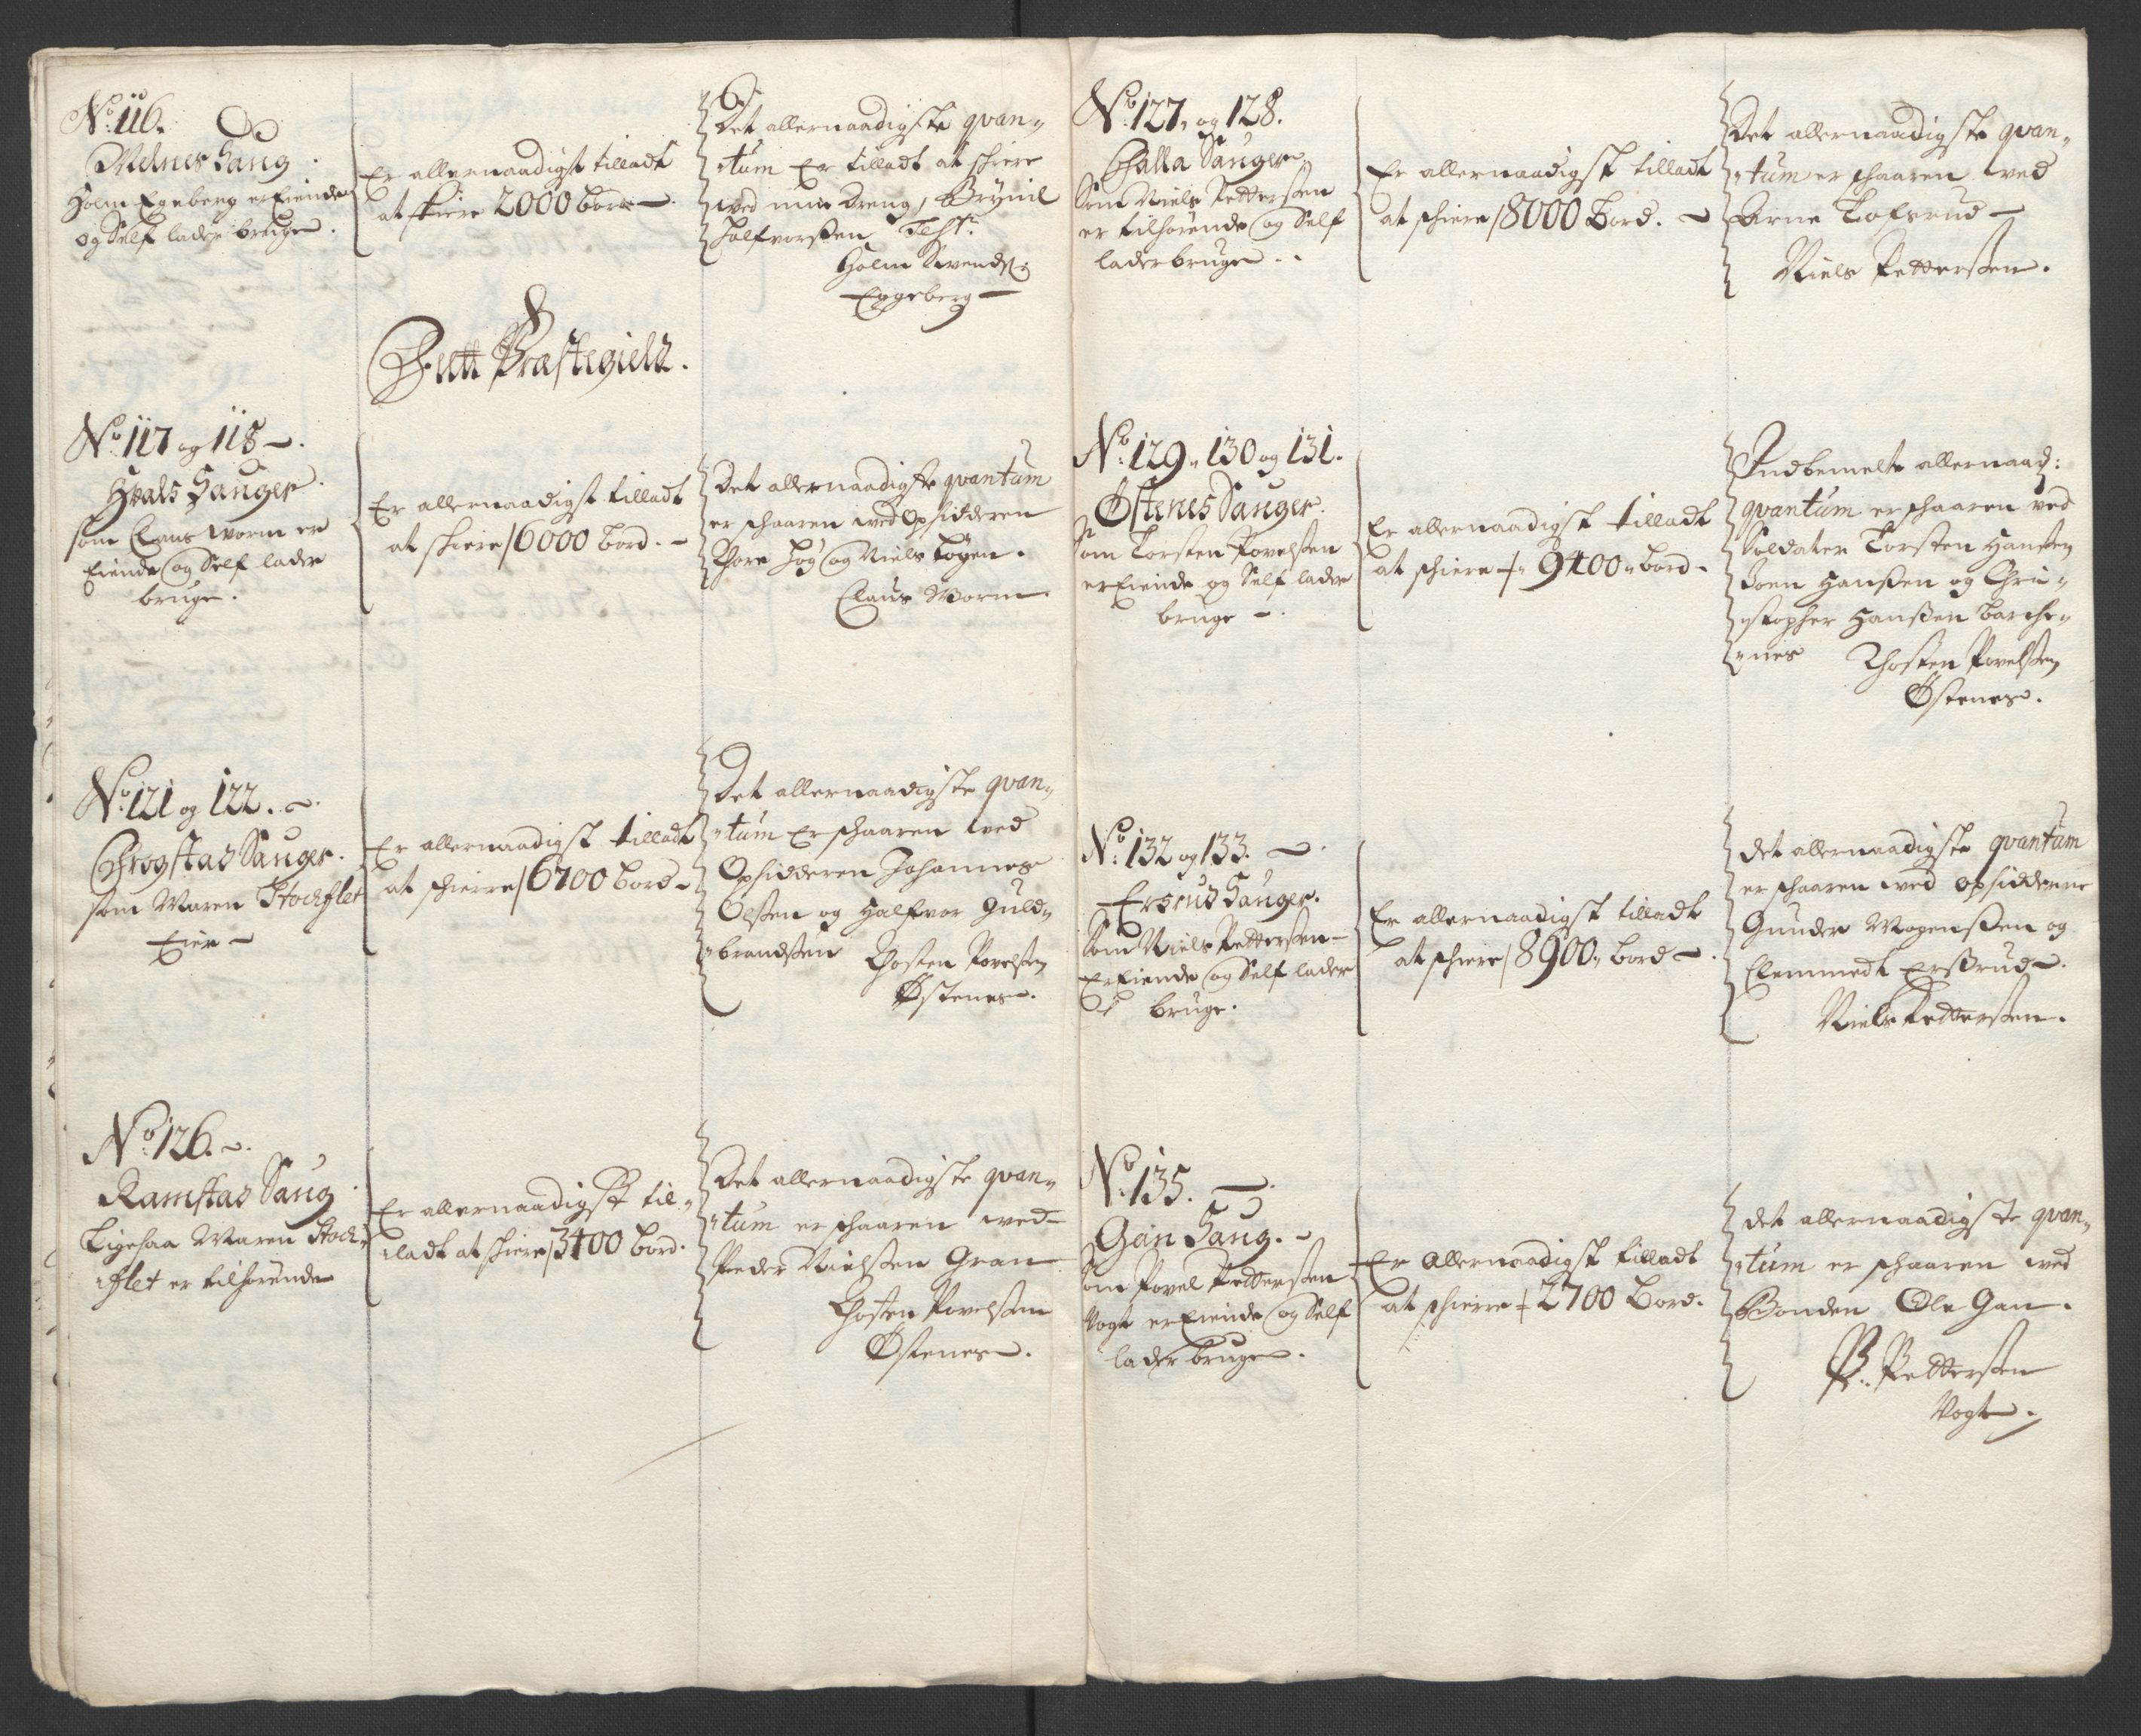 No. 116.
Melnes Saug
Holm Egeberg er Eiende
og Self lader bruge.
Er allernaadigst tilladt
at skiere 2000 bord.
Det allernaadigste qvan-
tum Er tilladt at schiere
wed min Dreng, Brynil
Halfvorßen Test:
Holm Svends:
Eggeberg
Prestegield.
No. 117 og 118.
Hvals Sauger.
som Claus Worm er
Eiende og Self lader
bruge.
Er allernaadigst tilladt
at skiere / 6000 bord.
Det allernaadigste qvantum
er schaaren wed Opsidderen
Thore Høg og Niels Løgen.
Claus Worm
No. 121 og 122.
Chrogstad Sauger.
som Maren Stochflet
Eier
Er allernaadigst tilladt
at schierre / 6700 bord
Det allernaadigste qvan-
tum Er schaaren wed
Opsidderen Johannes
Olßen og Halfvor Guld-
brandßen Thosten Povelßen
Østenes.
No. 126.
Ramstad Saug
Ligesaa Maren Stoch-
flet er tilhørende
Er allernaadigst til-
ladt at skiere / 3400 bord.
Det allernaadigste qvan-
tum er schaaren wed
Peder Nielßen Gran
Thosten Povelßen
Østenes.
No. 127, og 128.
Challa Sauger
Som Niels Petterßen
er tilhørende og Self
lader bruge.
Er allernaadigst tilladt
at schiere / 8000 Bord.
Det allernaadigste qvan-
tum er schaaren wed
Arne Tofsrud
Niels Petterßen.
No. 129, 130 og 131.
Østenes Sauger.
Som Torsten Povelßen
er Eiende og Self lader
bruge.
Er allernaadigst tilladt
at schiere 9400 bord
Indbemelte allernaad:
qvantum er schaaren ved
Soldater Torsten Hanßen
Joen Hanßen og Chri-
stopher Hanßen Barche-
nes Thosten Povelßen
Østenes.
No. 132 og 133.
Ersrud Sauger.
Som Niels Petterßen
Er Eiende og Self lader
bruge.
Er allernaadigst tilladt
at schiere / 8900 bord
det allernaadigste qvantum
er schaaren wed opsidderne
Gunder Mogenßen og
Clemmedt Erßrud.
Niels Petterßen.
No. 135.
Gan Saug.
Som Povel Petterßen
Vogt er Eiende og Self
lader bruge.
Er Allernaadigst tilladt
at schierre 2700 Bord.
det allernaadigste qvan-
tum er schaaren wed
Bonden Ole Gan.
P. Petterßen
Vogt.